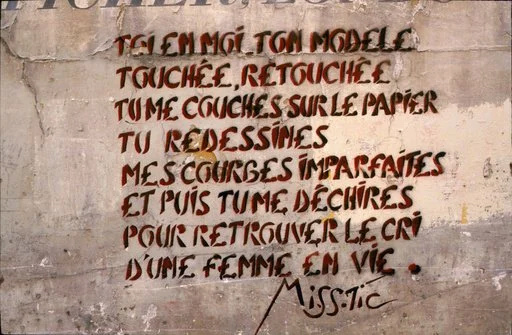 TOI EN MOI, TON MODELE
TOUCHÉE, RETOUCHÉE
TU ME COUCHES SUR LE PAPIER
TU REDESSINES
MES COURBES IMPARFAITES
ET PUIS TU ME DÉCHIRES
POUR RETROUVER LE CRI
D'UNE FEMME EN VIE.
MISS.TIC